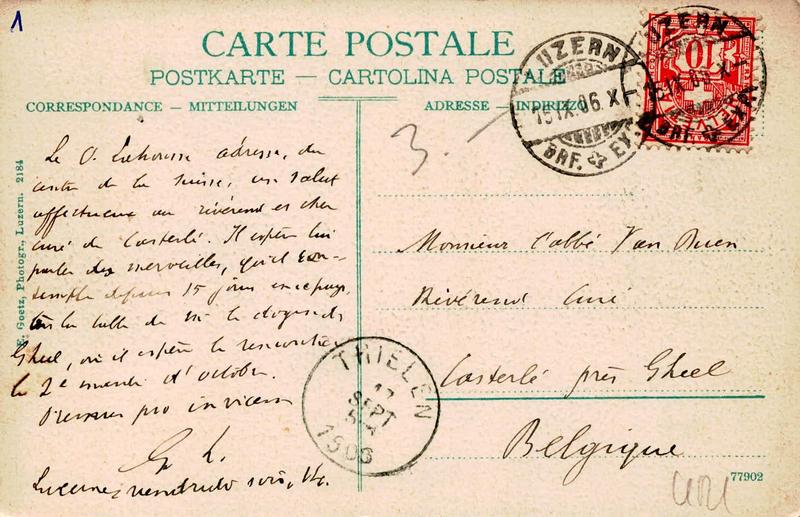 1
CARTE POSTALE
POSTKARTE — CARTOLINA POSTALE
CORRESPONDANCE — MITTEILUNGEN
ADRESSE — INDIRIZZO
LUZERN
15 IX.06.X-
BRF. EXP.
LUZERN
15 IX.06.X-
BRF. EXP.
10
3.
E. Goetz, Photogr., Luzern. 2184
Le O. adresse, du
centre de la Suisse, un salut
affectueux au révérend et cher
curé de Casterlé. Il espère lui
parler des merveilles, qu'il con-
temple depuis 15 jours en ce pays,
à la table de Mr le doyen de
Gheel, où il espère le rencontrer
le 2e mardi d'octobre.
Oremus pro invicem
G. L.
Lucerne, vendredi soir,
Monsieur l'abbé Van Buen
Révérend Curé
Casterlé près Gheel
Belgique
THIELEN
17
SEPT
1906
77902